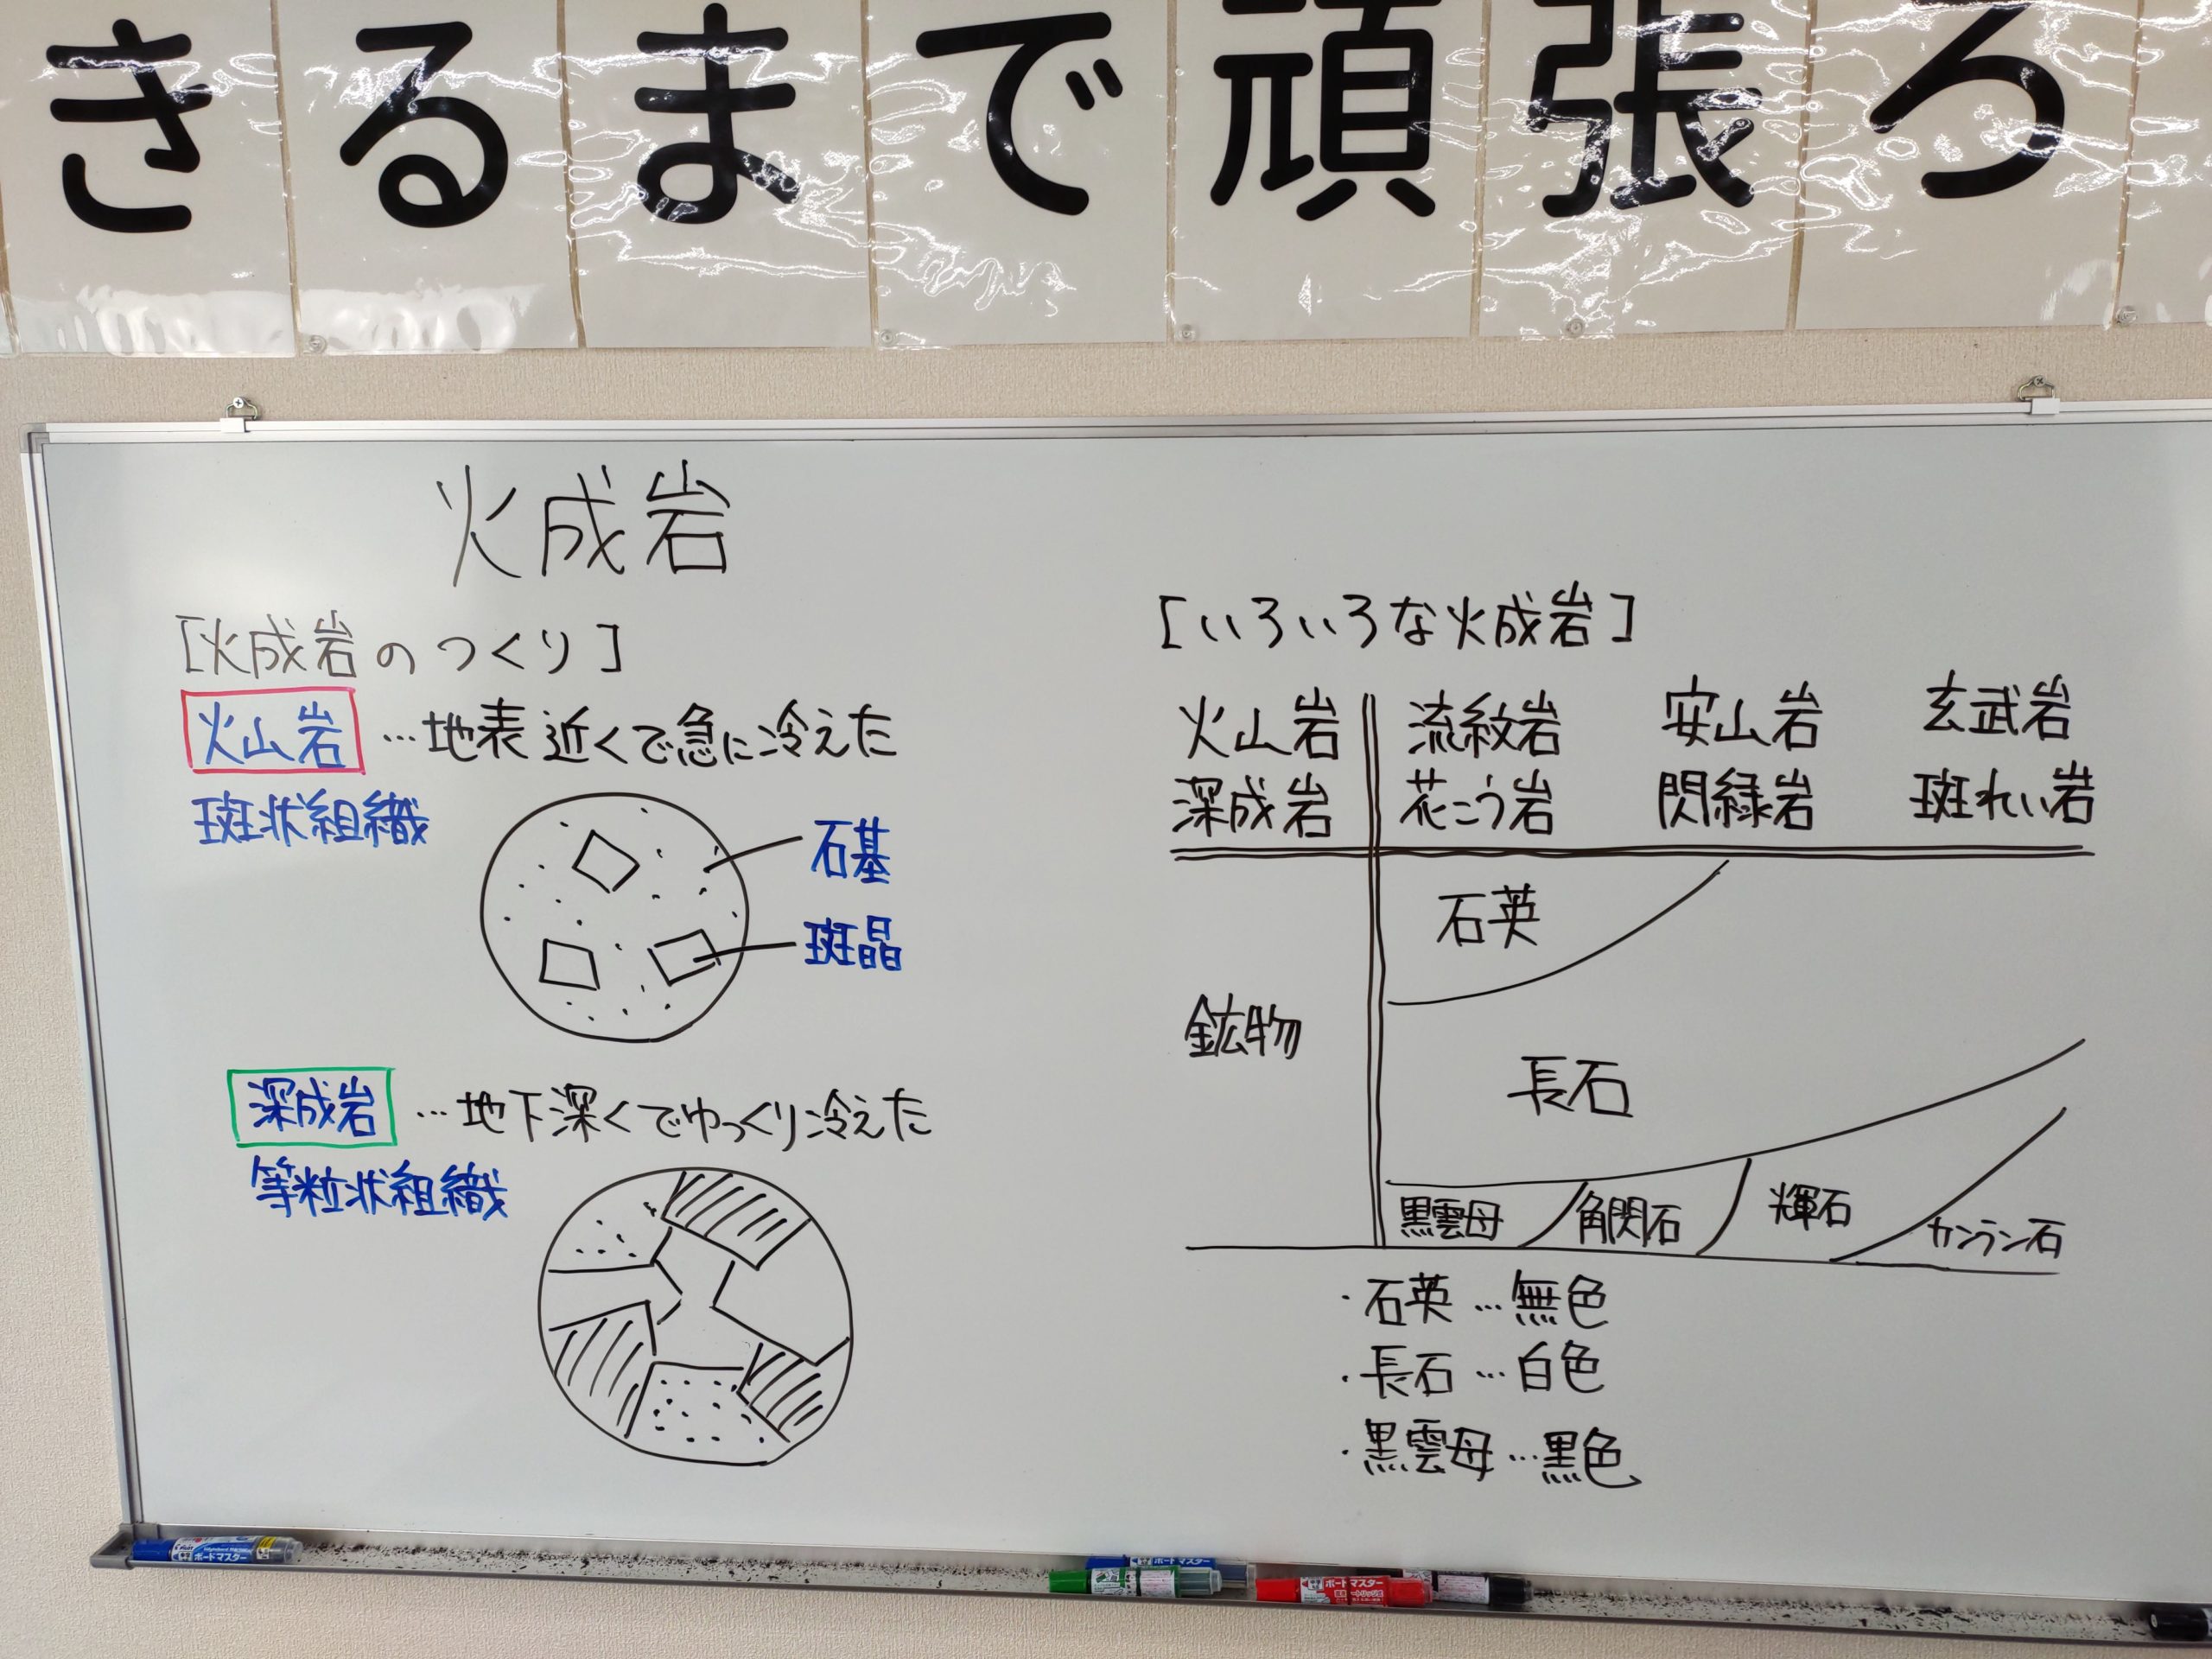 きるまで頑張ろ
火成岩
[火成岩のつくり]
火山岩…地表近くで急に冷えた
斑状組織
石基
斑晶
深成岩…地下深くでゆっくり冷えた
等粒状組織
[いろいろな火成岩]
火山岩 流紋岩 安山岩 玄武岩
深成岩 花こう岩 閃緑岩 斑れい岩
鉱物
石英
長石
黒雲母 角閃石 輝石 カンラン石
・石英…無色
・長石…白色
・黒雲母…黒色
ボードマスター
ボードマスター
ボードマスター